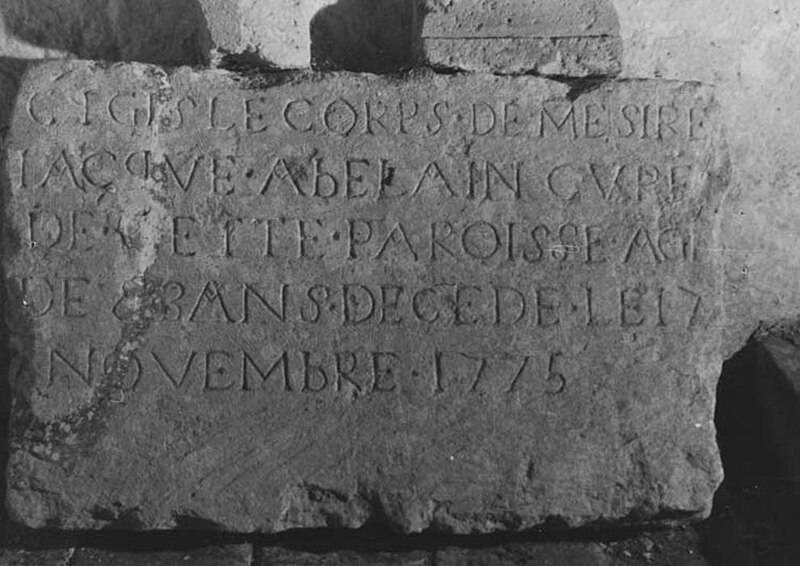 CYGIS LE CORPS · DE MESIRE
IACQVE · AbELAIN CVRE
DE · CETTE · PAROISSE AGE
DE 83 ANS · DECEDE · LE 17
NOVEMbRE · 1775